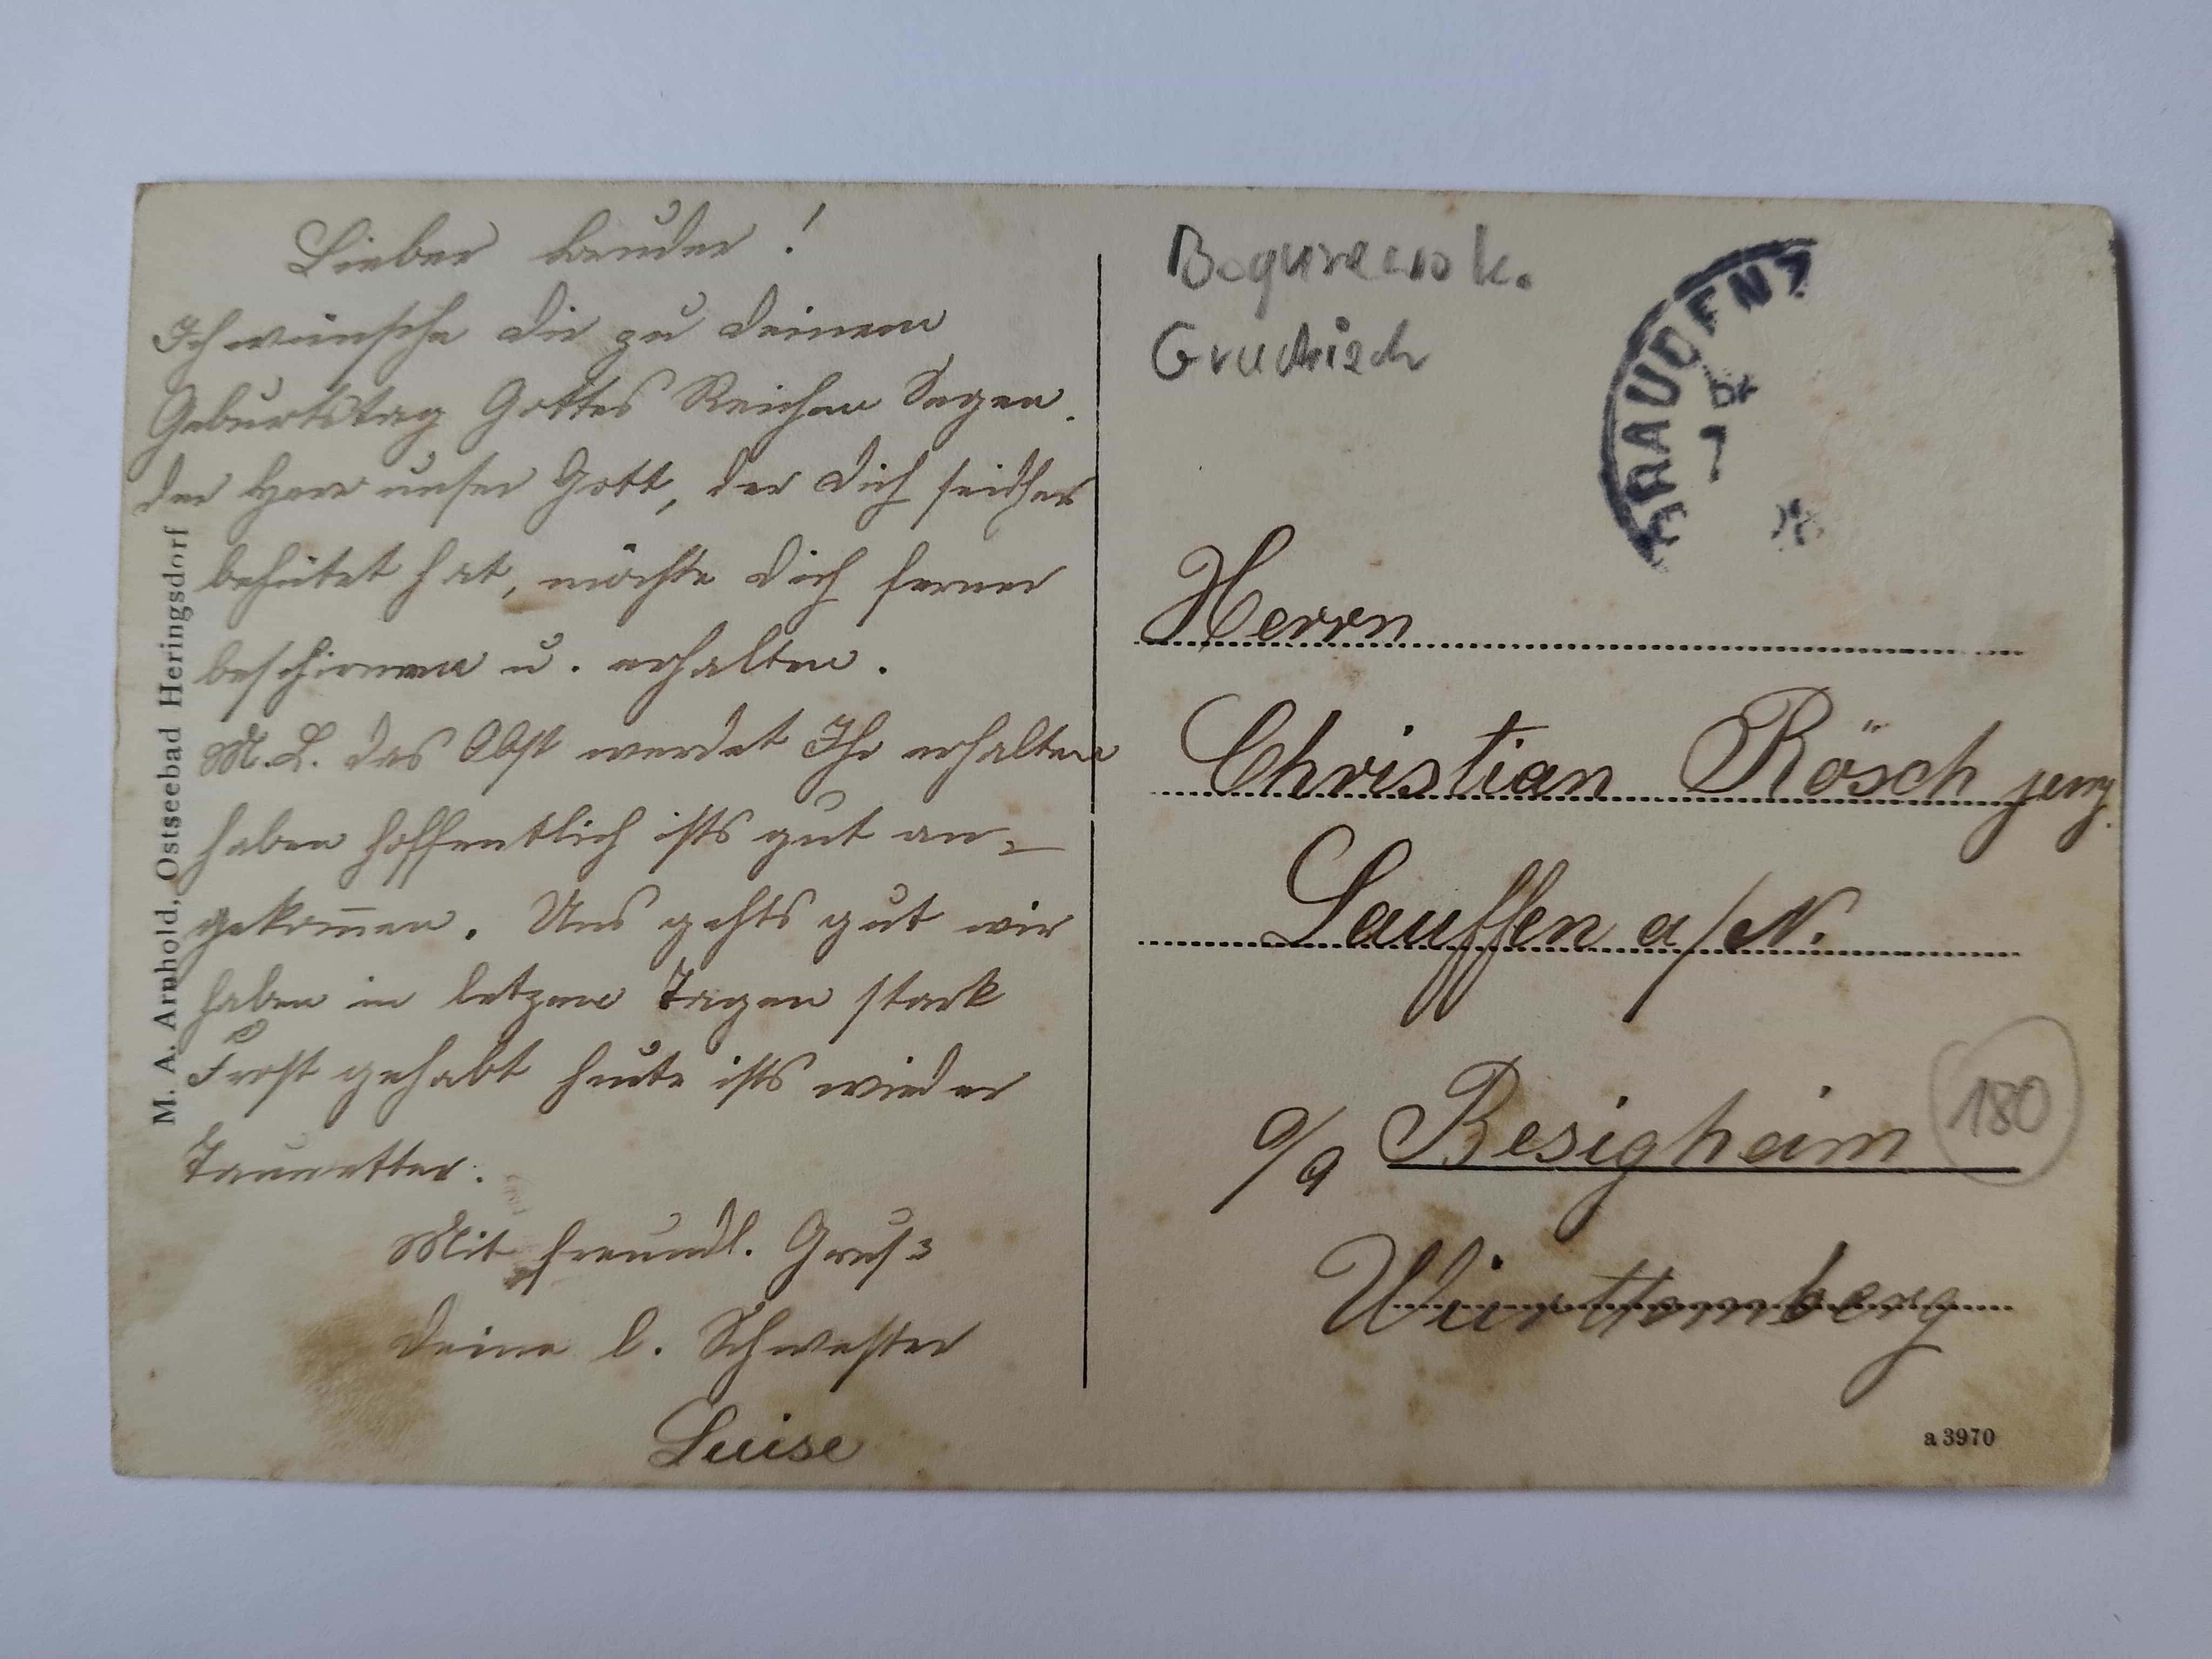 Lieber Bruder!
Ich wünsche Dir zu Deinem
Geburtstag Gottes Reichen Segen.
Der Herr unser Gott, der Dich seidher
behütet hat, möchte Dich ferner
beschirmen u. erhalten.
M. L. das Obst werdet Ihr erhalten
haben hoffentlich ists gut an-
gekom̅en. Uns gehts gut wir
haben in letzen Tagen stark
Frost gehabt heute ists wieder
Tauwetter.
Mit freundl. Gruß
Deine l. Schwester
Luise
M. A. Arnhold, Ostseebad Heringsdorf
GRAUDENZ
7
Herrn
Christian Rösch jung.
Lauffen a/N.
o/a Besigheim
Württemberg
180
a 3970